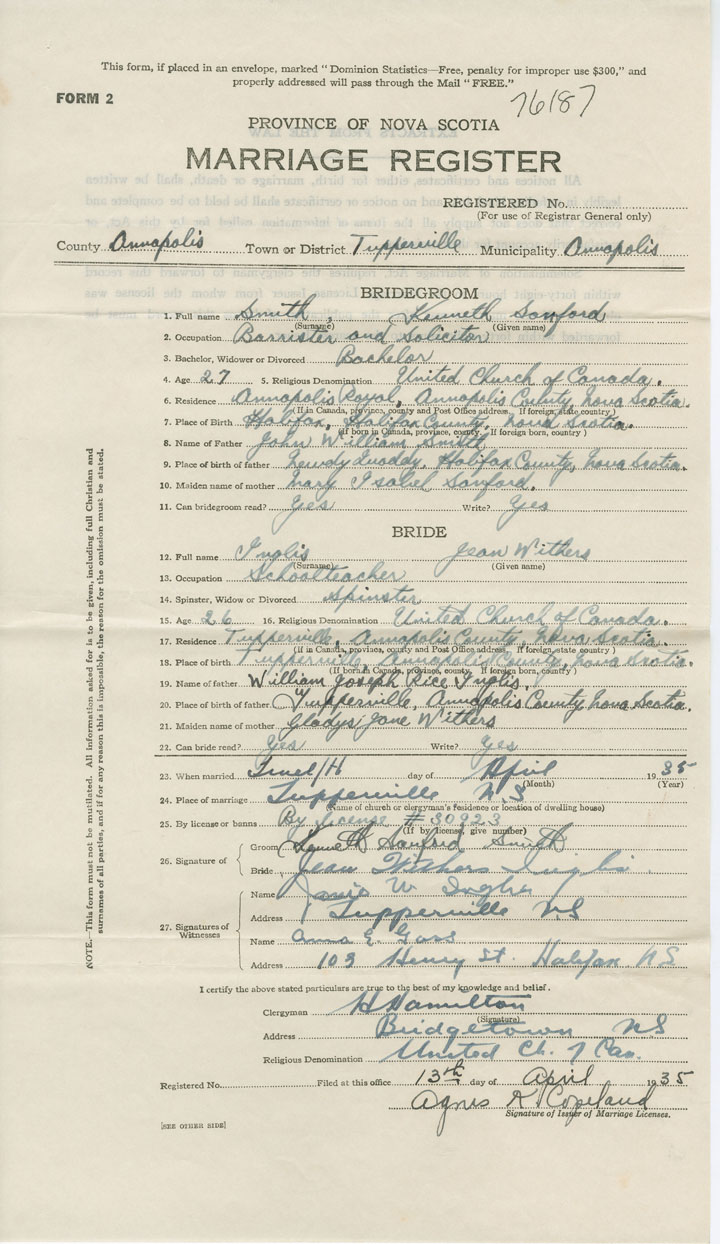 This form, if placed in an envelope, marked "Dominion Statistics—Free, penalty for improper use $300," and
properly addressed will pass through the Mail "FREE."
FORM 2
76187
PROVINCE OF NOVA SCOTIA
MARRIAGE REGISTER
REGISTERED No.
(For use of Registrar General only)
County Annapolis Town or District Tupperville Municipality Annapolis
BRIDEGROOM
1. Full name Smith, Kenneth Sanford
(Surname) (Given name)
2. Occupation Barrister and Solicitor
3. Bachelor, Widower or Divorced Bachelor
4. Age 27 5. Religious Denomination United Church of Canada.
6. Residence Annapolis Royal, Annapolis County, Nova Scotia.
(If in Canada, province, county and Post Office address. If foreign, state country)
7. Place of Birth Halifax, Halifax County, Nova Scotia.
(If born in Canada, province, county. If foreign born, country)
8. Name of Father John William Smith
9. Place of birth of father Necum Teuch, Halifax County, Nova Scotia.
10. Maiden name of mother Mary Isabel Sanford.
11. Can bridegroom read? Yes Write? Yes
BRIDE
12. Full name Inglis Jean Withers
(Surname) (Given name)
13. Occupation Schoolteacher
14. Spinster, Widow or Divorced Spinster
15. Age 26 16. Religious Denomination United Church of Canada.
17. Residence Tupperville, Annapolis County, Nova Scotia.
(If in Canada, province, county and Post Office address. If foreign, state country)
18. Place of birth Tupperville, Annapolis County, Nova Scotia.
(If born in Canada, province, county. If foreign born, country)
19. Name of father William Joseph Rice Inglis.
20. Place of birth of father Tupperville, Annapolis County, Nova Scotia.
21. Maiden name of mother Gladys Jane Withers
22. Can bride read? Yes Write? Yes
23. When married day of April 1935
(Month) (Year)
24. Place of marriage Tupperville N S
(Name of church or clergyman's residence or location of dwelling house)
25. By license or banns By license # 30923
(If by license, give number)
26. Signature of
Groom Kenneth Sanford Smith
Bride Jean Withers Inglis
27. Signatures of Witnesses
Name W Inglis
Address Tupperville NS
Name Anna E. Goss
Address 103 Henry St. Halifax N S
I certify the above stated particulars are true to the best of my knowledge and belief.
Clergyman H Hamilton
(Signature)
Address Bridgetown NS
Religious Denomination United Ch. of Can.
Registered No. Filed at this office 13th day of April 1935
Agnes R Copeland
Signature of Issuer of Marriage Licenses.
[SEE OTHER SIDE]
NOTE.—This form must not be mutilated. All information asked for is to be given, including full Christian and
surnames of all parties, and if for any reason this is impossible, the reason for the omission must be stated.